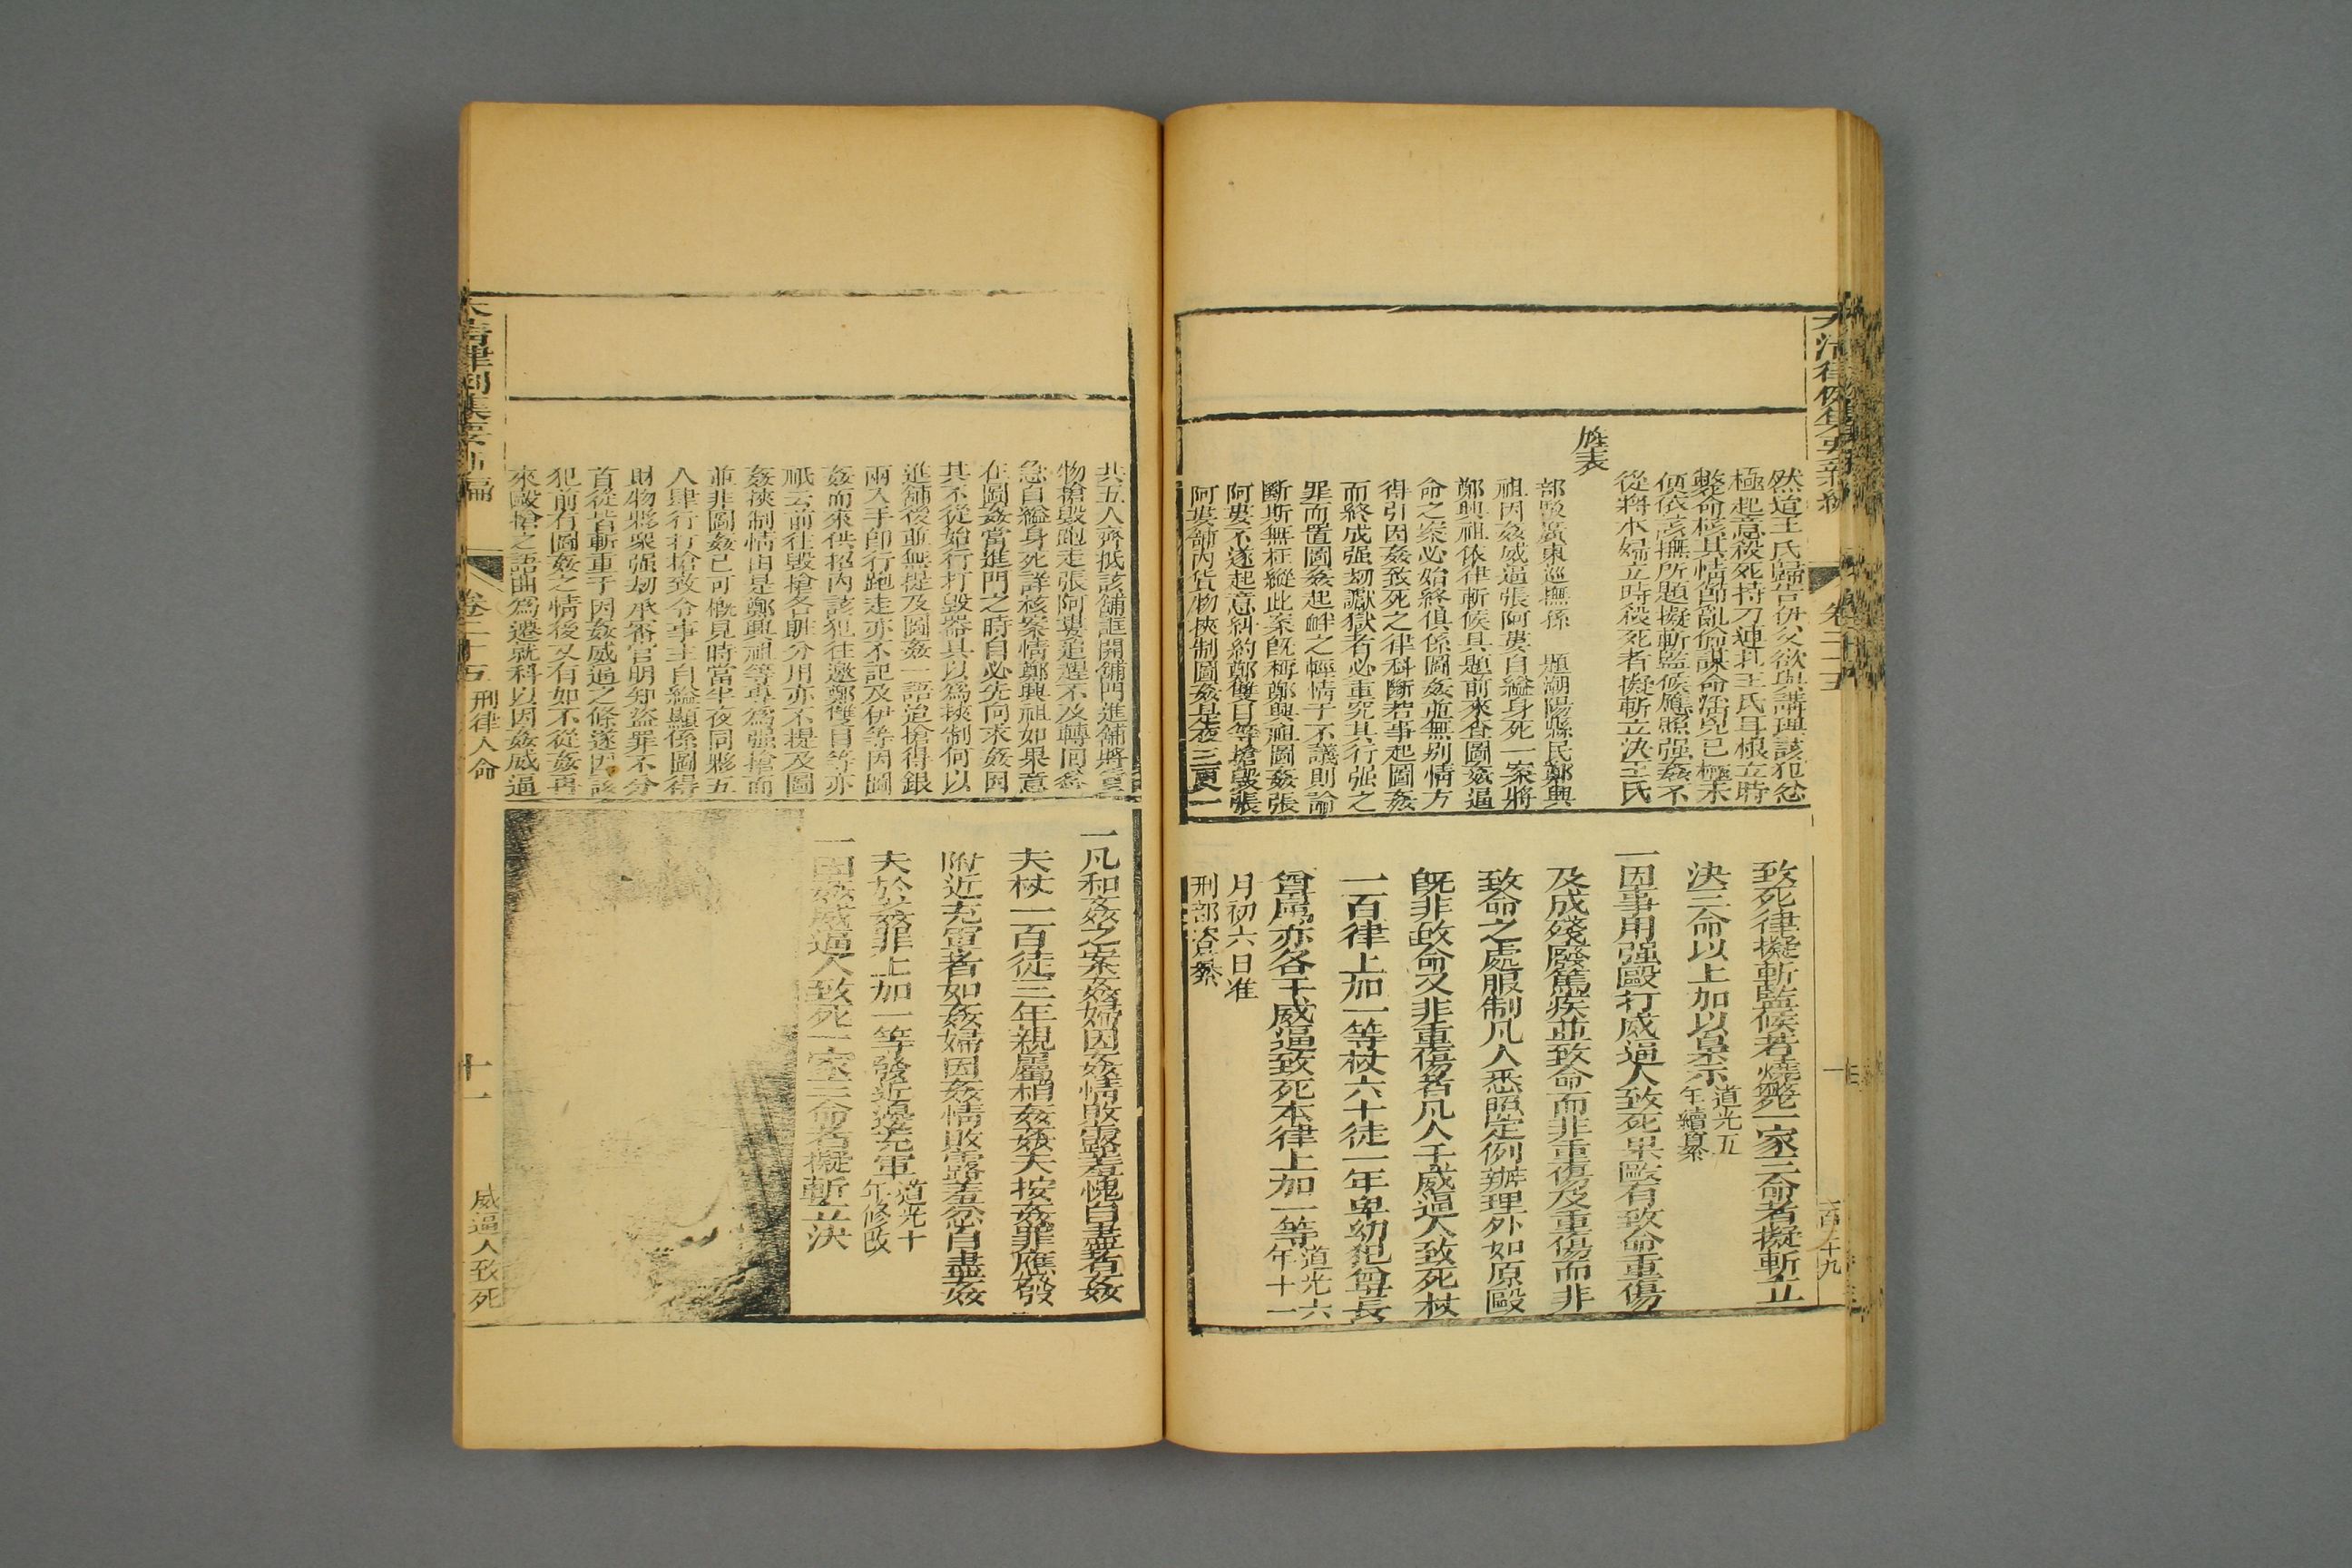 旌表
部駁廣東巡撫孫 題潮陽縣民鄭興
祖因姦威逼張阿婁自縊身死一案將
鄭興祖依律斬候具題前來查圖姦逼
命之案必始終俱係圖姦並無別情方
得引因姦致死之律科斷若事起圖姦
而終成强劫讞獄者必重究其行强之
罪而置圖姦起衅之輕情于不議則論
斷斯無枉縱此案旣稱鄭興祖圖姦張
阿婁不遂起意糾約鄭雙目等搶毀張
阿婁舖內貨物挾制圖姦是夜三更一
致死律擬斬監候若燒斃一家三命者擬斬立
決三命以上加以梟示道光五年續纂
一因事用强毆打威逼人致死果毆有致命重傷
及成殘廢篤疾並致命而非重傷及重傷而非
致命之處服制凡人悉照定例辦理外如原毆
旣非致命又非重傷者凡人于威逼人致死杖
一百律上加一等杖六十徒一年卑幼犯尊長
尊屬亦各于威逼致死本律上加一等道光六年十一
月初六日准
刑部咨纂
卷二十五
共五人齊抵該舖誆開舖門進舖將貨
物搶毀跑走張阿婁追趕不及轉回忿
急自縊身死詳核案情鄭興祖如果意
在圖姦當進門之時自必先向求姦因
其不從始行打毀器具以爲挾制何以
進舖後並無提及圖姦一語迨搶得銀
兩入手卽行跑走亦不記及伊等因圖
姦而來供招內該犯往邀鄭雙目等亦
祇云前往毀搶各賍分用亦不提及圖
姦挾制情由是鄭興祖等專爲强搶而
並非圖姦已可槪見時當半夜同夥五
人肆行打搶致令事主自縊顯係圖得
財物夥衆强劫承審官明知盜罪不分
首從皆斬重于因姦威逼之條遂因該
犯前有圖姦之情後又有如不從姦再
來毆搶之語曲爲遷就科以因姦威逼
一凡和姦之案姦婦因姦情敗露羞愧自盡者姦
夫杖一百徒三年親屬相姦姦夫按姦罪應發
附近充軍者如姦婦因姦情敗露羞忿自盡姦
夫於姦罪上加一等發近邊充軍道光十年修改
一因姦威逼人致死一家三命者擬斬立決
大清律例集要新編
卷二十五
刑律人命
十一
威逼人致死